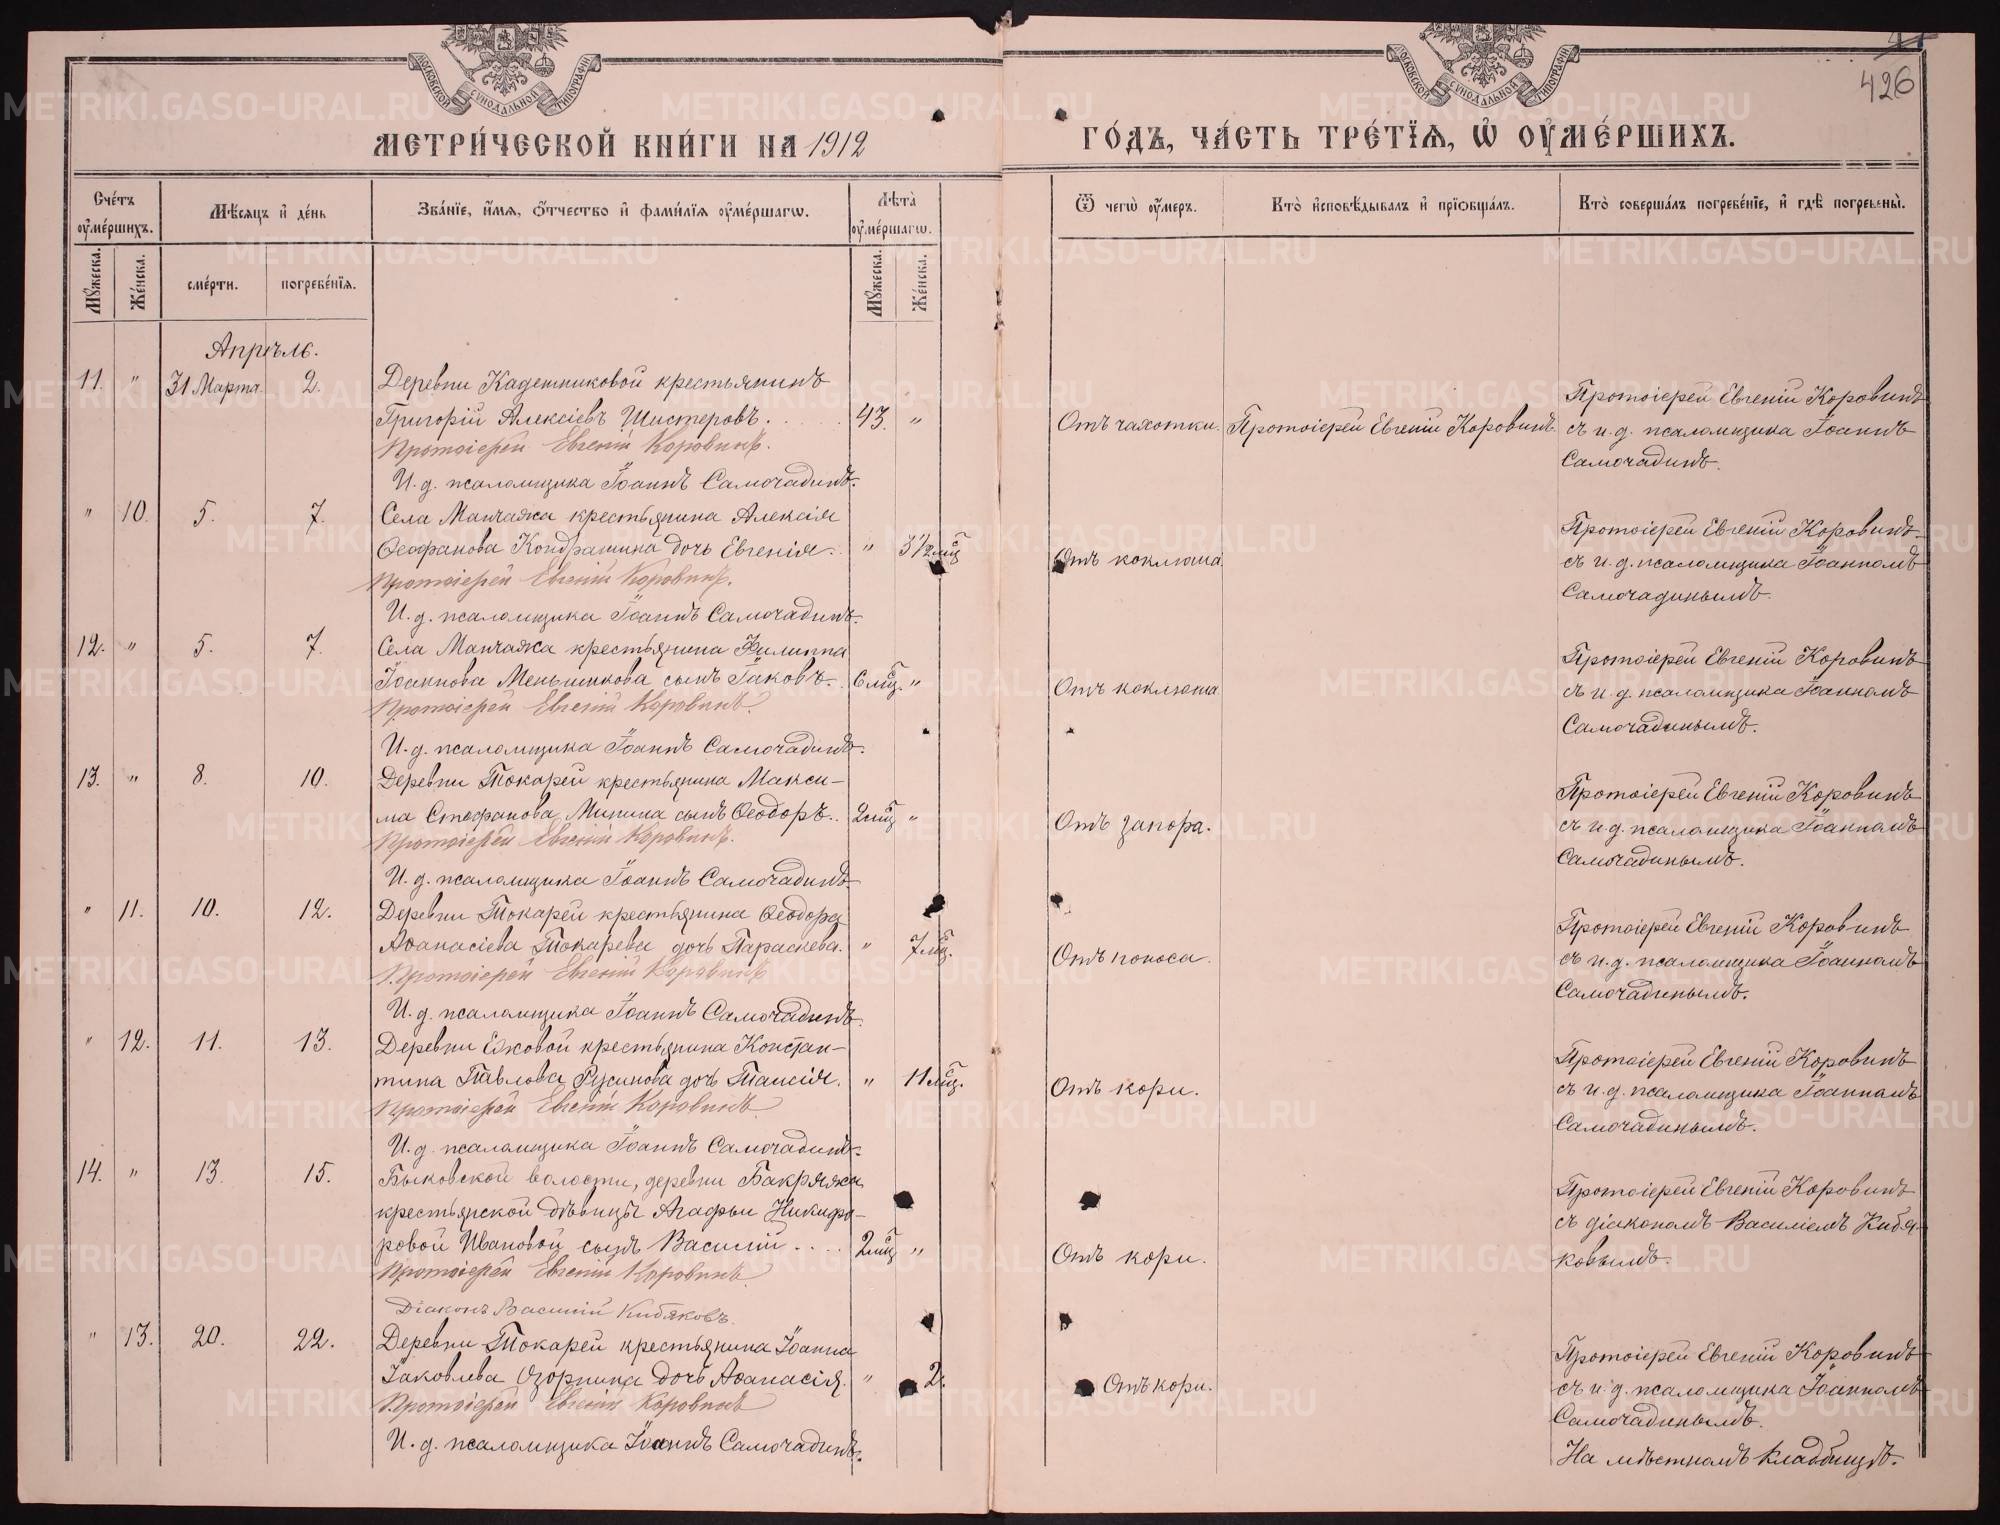 МОСКОВСКОЙ СѴНОДАЛЬНОЙ ТИПОГРАФІИ
МОСКОВСКОЙ СѴНОДАЛЬНОЙ ТИПОГРАФІИ
426
МЕТРИ́ЧЕСКОЙ КНИ́ГИ НА 1912
ГО́ДЪ, ЧА́СТЬ ТРЕ́ТЇѦ, Ѡ҆ ОУ҆МЕ́РШИХЪ.
Сче́тъ оу҆ме́ршихъ.
Мѣ́сяцъ и҆ де́нь
Зва́нїе, и҆́мѧ, ѻ҆́тчество и҆ фами́лїѧ оу҆ме́ршагѡ.
Лѣ́та оу҆ме́ршагѡ.
Ѿ чегѡ̀ оу҆́меръ.
Кто̀ и҆сповѣ́дывалъ и҆ прїѡбща́лъ.
Кто̀ соверша́лъ погребе́нїе, и҆ гдѣ̀ погребены̀.
Мꙋ́жеска. Же́нска. сме́рти. погребе́нїѧ. Мꙋ́жеска. Же́нска.
Апрѣль.
11. " 31 Марта. 2. Деревни Кадешниковой крестьянинъ
Григорій Алексіевъ Шистеровъ. 43. "
Протоіерей Евгеній Коровинъ.
И. д. псаломщика Іоаннъ Самочадинъ.
Отъ чахотки. Протоіерей Евгеній Коровинъ.
Протоіерей Евгеній Коровинъ
съ и. д. псаломщика Іоаннъ
Самочадинъ.
" 10. 5. 7. Села Манчажа крестьянина Алексія
Ѳеофанова Кондрашина дочь Евгенія. " 3½ мѣс.
Протоіерей Евгеній Коровинъ.
И. д. псаломщика Іоаннъ Самочадинъ.
Отъ коклюша
Протоіерей Евгеній Коровинъ
съ и. д. псаломщика Іоанномъ
Самочадинымъ.
12. " 5. 7. Села Манчажа крестьянина Филиппа
Іоаннова Меньшикова сынъ Іаковъ. 6 мѣс. "
Протоіерей Евгеній Коровинъ.
И. д. псаломщика Іоаннъ Самочадинъ.
Отъ коклюша
Протоіерей Евгеній Коровинъ
съ и. д. псаломщика Іоанномъ
Самочадинымъ.
13. " 8. 10. Деревни Токарей крестьянина Макси-
ма Стефанова Минина сынъ Ѳеодоръ. 2 мѣс. "
Протоіерей Евгеній Коровинъ.
И. д. псаломщика Іоаннъ Самочадинъ.
Отъ запора.
Протоіерей Евгеній Коровинъ
съ и. д. псаломщика Іоанномъ
Самочадинымъ.
" 11. 10. 12. Деревни Токарей крестьянина Ѳеодора
Аѳанасіева Токарева дочь Параскева. " 7 мѣс.
Протоіерей Евгеній Коровинъ
И. д. псаломщика Іоаннъ Самочадинъ.
Отъ поноса.
Протоіерей Евгеній Коровинъ
съ и. д. псаломщика Іоанномъ
Самочадинымъ.
" 12. 11. 13. Деревни Ежовой крестьянина Констан-
тина Павлова Русинова дочь Таисія. " 11 мѣс.
Протоіерей Евгеній Коровинъ
И. д. псаломщика Іоаннъ Самочадинъ.
Отъ кори.
Протоіерей Евгеній Коровинъ
съ и. д. псаломщика Іоанномъ
Самочадинымъ.
14. " 13. 15. Быковской волости, деревни Бакряжи
крестьянской дѣвицы Агафьи Никифо-
ровой Ивановой сынъ Василій.... 2 мѣс. "
Протоіерей Евгеній Коровинъ
Діаконъ Василій Кибяковъ.
Отъ кори.
Протоіерей Евгеній Коровинъ
съ діакономъ Василіемъ Кибя-
ковымъ.
" 13. 20. 22. Деревни Токарей крестьянина Іоанна
Іаковлева Озорнина дочь Аѳанасія. " 2.
Протоіерей Евгеній Коровинъ
И. д. псаломщика Іоаннъ Самочадинъ.
Отъ кори.
Протоіерей Евгеній Коровинъ
съ и. д. псаломщика Іоанномъ
Самочадинымъ.
На мѣстномъ кладбищѣ.
METRIKI.GASO-URAL.RU